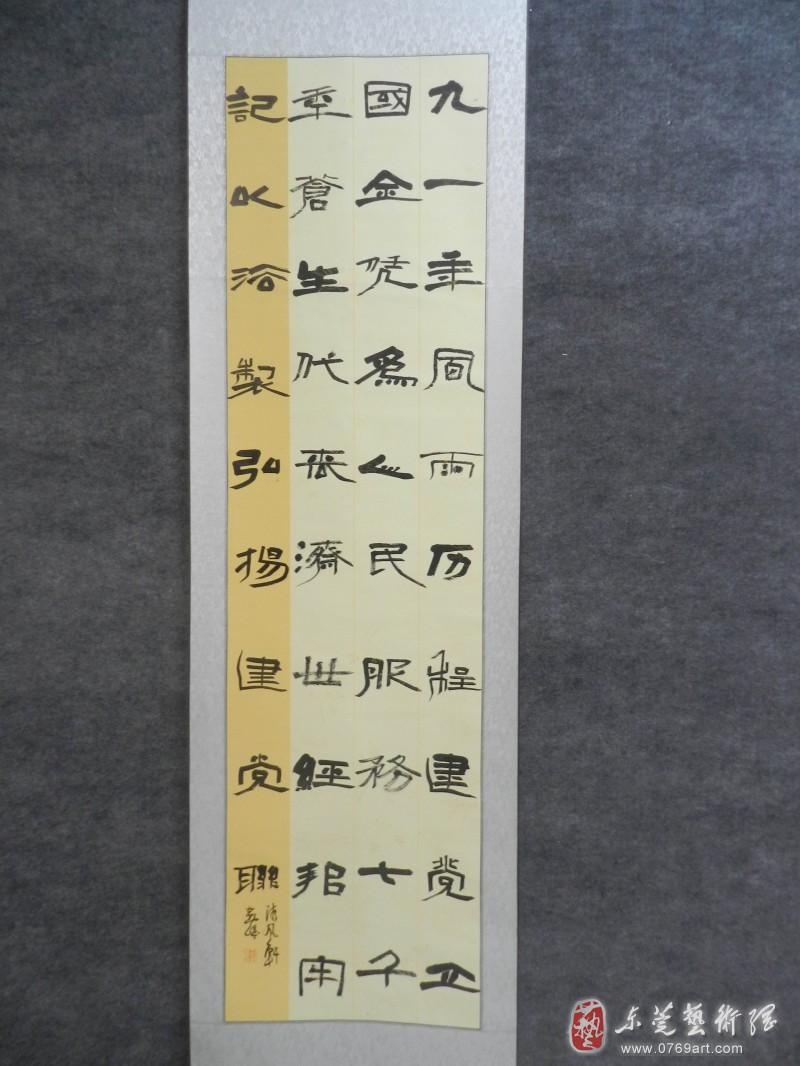 九一年風雨历程建党立
國全凭為人民服務七千
蒼生代表濟世經邦牢
記以法製弘揚建党聯
清風軒
东莞藝術網
www.0769art.com